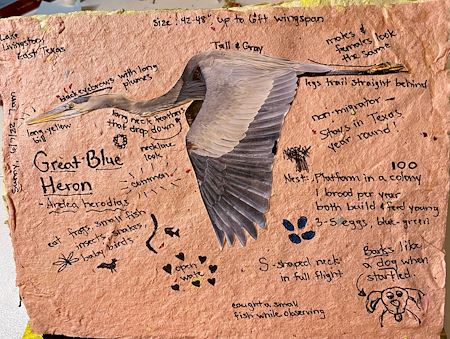 Size: 42-48" up to 6ft wingspan
Lake
Livingston,
East Texas
Tall & Gray
males & females look
the same
black eyebrows with long
plumes
legs trail straight behind
long yellow
bill
long neck feathers
that drop down
necklace
look
non-migrator
Stays in Texas
year round!
Sunny, 6/7/22
Great Blue
Heron
- Ardea herodias
common
100
Nest: Platform in a colony
1 brood per year
both build & feed young
3-5 eggs, blue-green
eat frogs, small fish,
insects, snakes,
baby birds
open
water
S-shaped neck
in full flight
Barks like
a dog when
startled.
caught a small
fish while observing